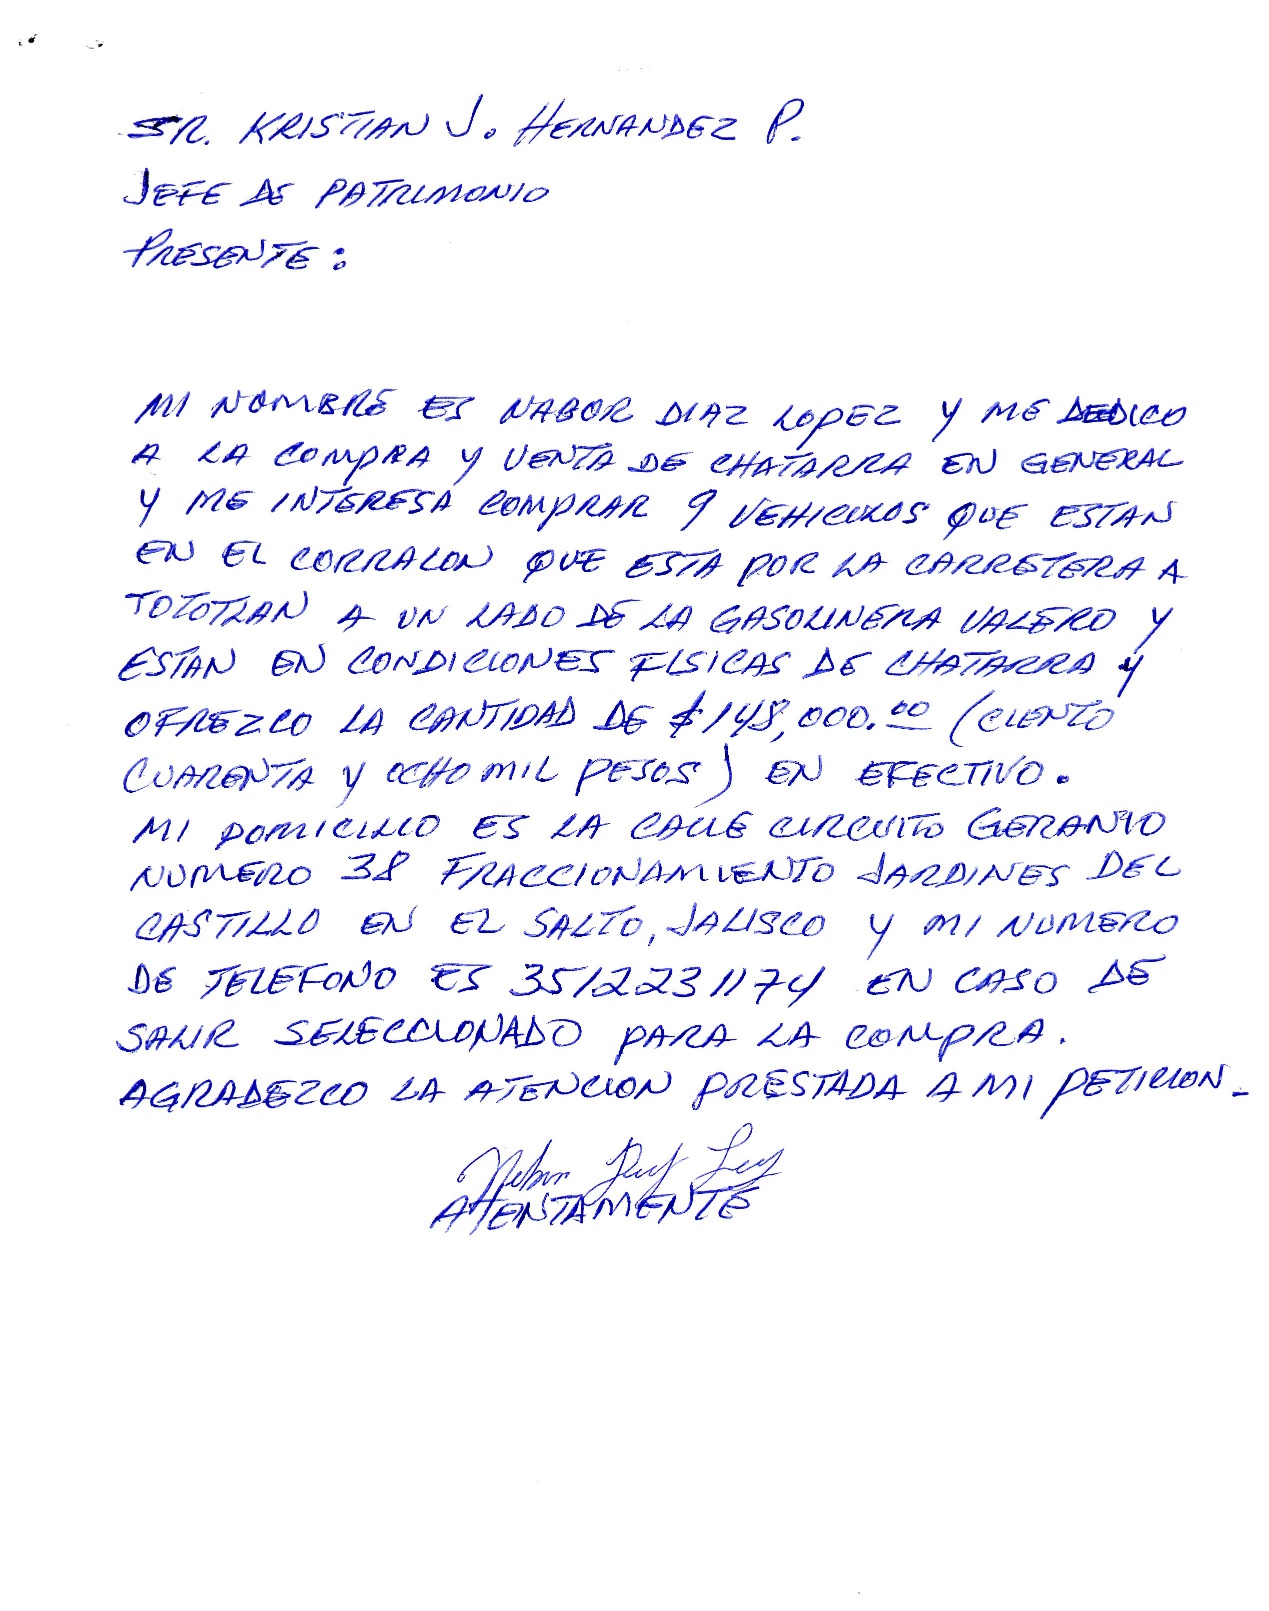 SR. KRISTIAN J. HERNANDEZ P.
JEFE DE PATRIMONIO
PRESENTE:
MI NOMBRE ES NABOR DIAZ LOPEZ Y ME DEDICO
A LA COMPRA Y VENTA DE CHATARRA EN GENERAL
Y ME INTERESA COMPRAR 9 VEHICULOS QUE ESTAN
EN EL CORRALON QUE ESTA POR LA CARRETERA A
TOTOTLAN A UN LADO DE LA GASOLINERA VALERO Y
ESTAN EN CONDICIONES FISICAS DE CHATARRA Y
OFREZCO LA CANTIDAD DE $148,000.00 (CIENTO
CUARENTA Y OCHO MIL PESOS) EN EFECTIVO.
MI DOMICILIO ES LA CALLE CIRCUITO GERANIO
NUMERO 38 FRACCIONAMIENTO JARDINES DEL
CASTILLO EN EL SALTO, JALISCO Y MI NUMERO
DE TELEFONO ES 3512231174 EN CASO DE
SALIR SELECCIONADO PARA LA COMPRA.
AGRADEZCO LA ATENCION PRESTADA A MI PETICION_
ATENTAMENTE